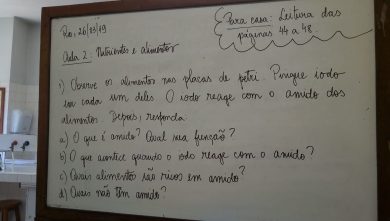 Rio, 26/03/19
Para casa: Leitura das
páginas 44 a 48.
Aula 2: Nutrientes e alimentos
1) Observe os alimentos nas placas de petri. Pingue iodo
em cada um deles. O iodo reage com o amido dos
alimentos. Depois, responda
a) O que é amido? Qual sua função?
b) O que acontece quando o iodo reage com o amido?
c) Quais alimentos são ricos em amido?
d) Quais não têm amido?